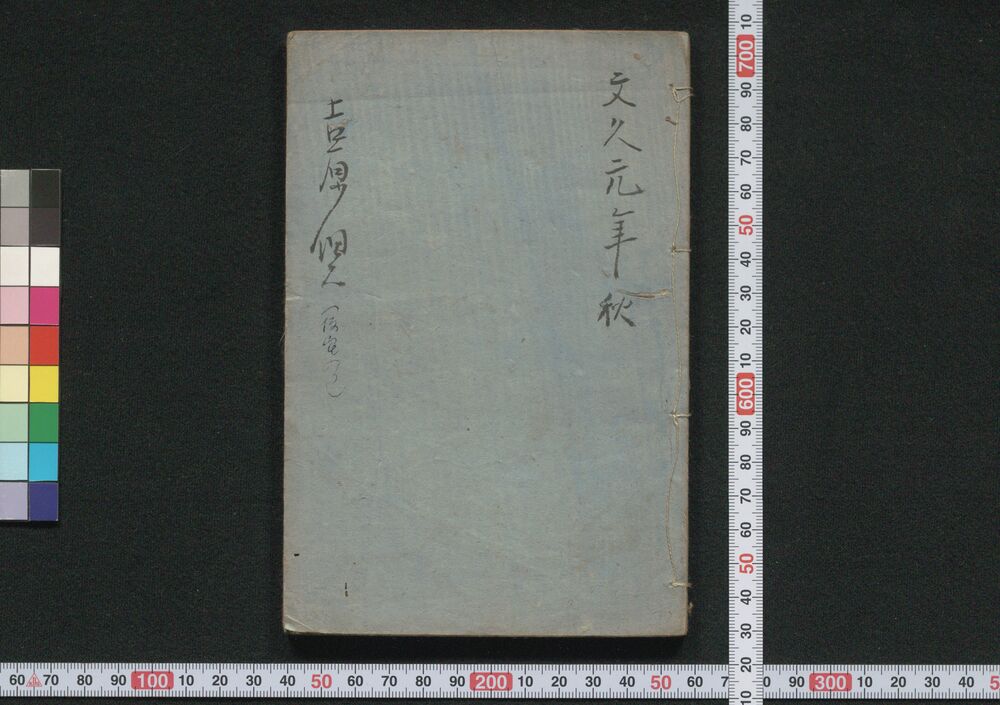 文久元年秋
吉原細見
60 70 80 90 100 10 20 30 40 50 60 70 80 90 200 10 20 30 40 50 60 7
90 300 10 20 30 40 5
10 700 90 80 70 60 50 40 30 20 10 600 90 80 70 60 50 40 30 20 10